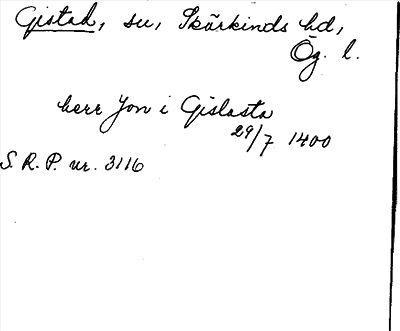 Gistad, su, Skärkinds hd,
Ög. l.
herr Jon i Gislasta
29/7 1400
S.R.P. nr. 3116